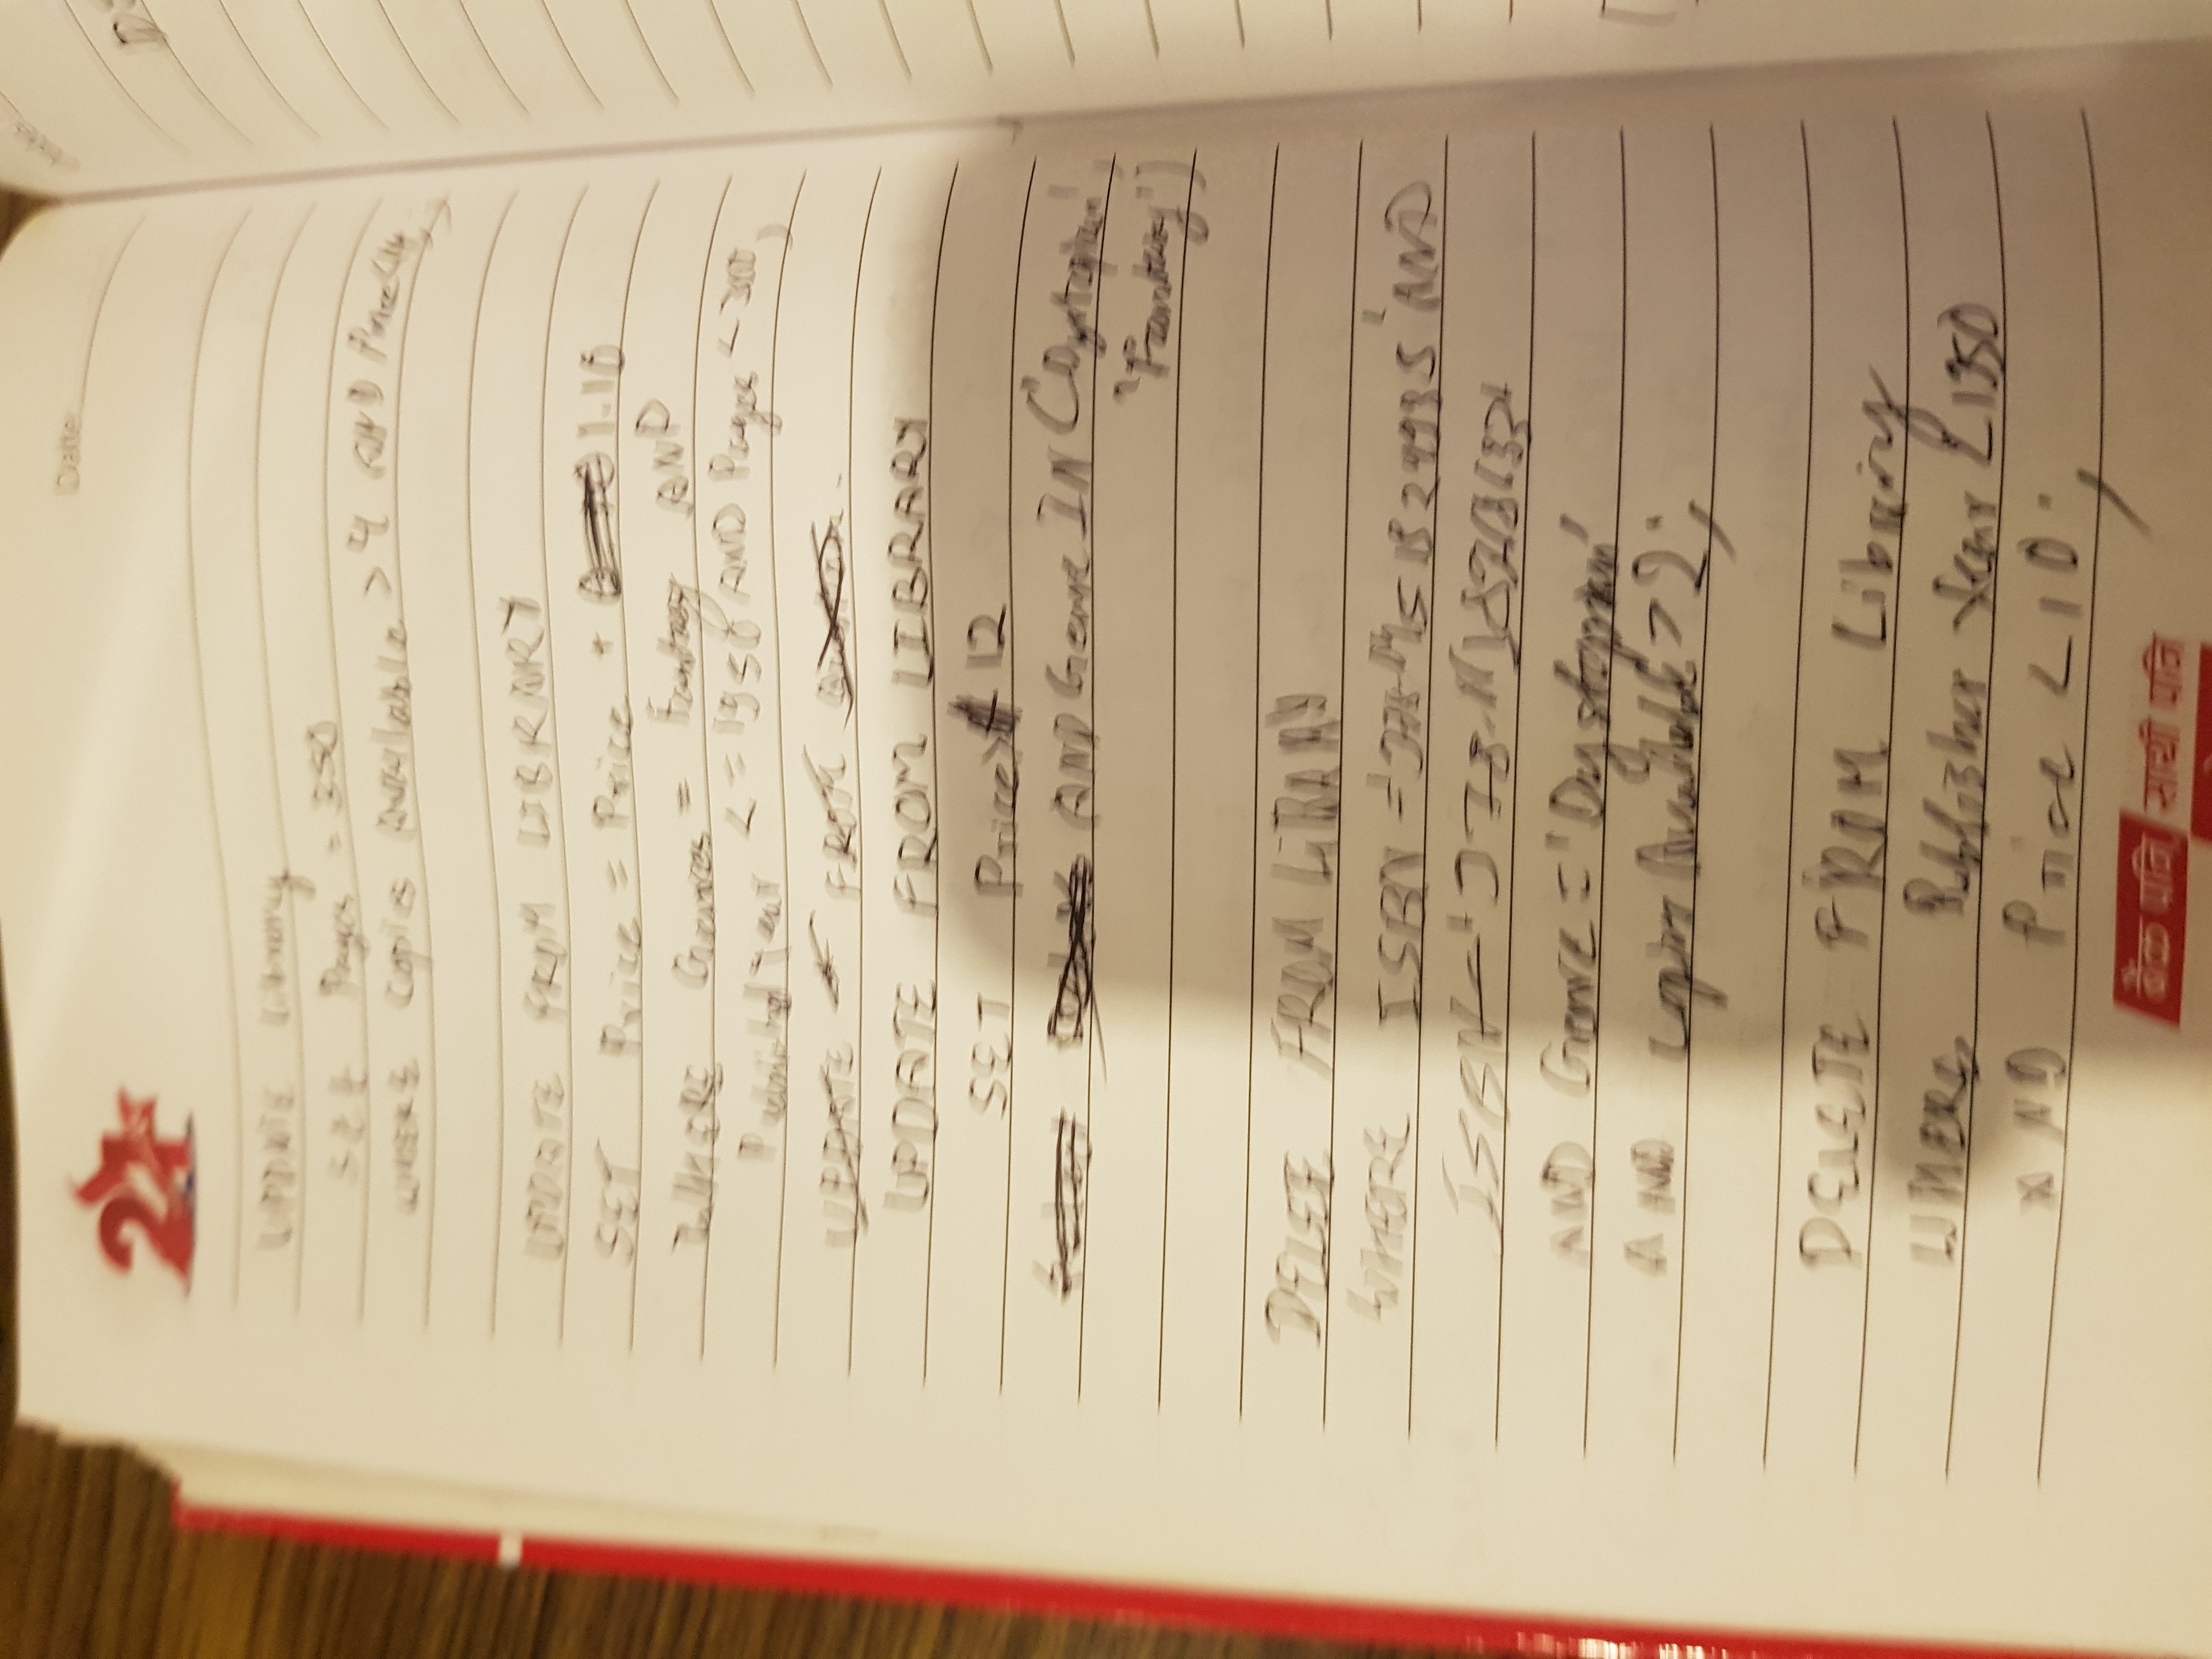 21st
Date:
UPDATE Library
SET Pages = 350
WHERE Copies Available > 4 AND Price
UPDATE FROM LIBRARY
SET Price = Price * 1.10
WHERE Genres = Fantasy AND
Published year <= 1950 AND Pages < 300;
UPDATE * FROM
UPDATE FROM LIBRARY
SET Price > 12
AND Genre IN ('Dystopian',
"Fantasy")
DELETE FROM LIBRARY
WHERE ISBN = AND
ISBN =
AND Genre = 'Dystopian'
AND Copies Available > 2;
DELETE FROM Library
WHERE Publisher Year < 1950
AND Price < 10;
बैंक पनि साथी पनि